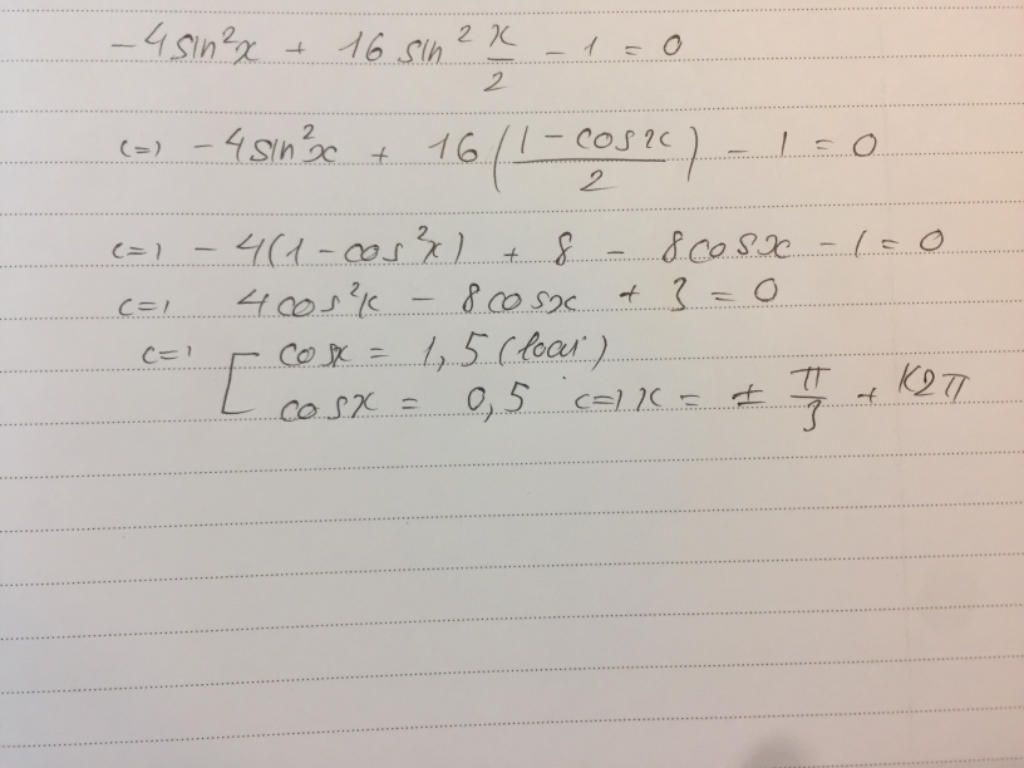 -4sin²x + 16 sin² x/2 - 1 = 0
<=> -4sin²x + 16(1 - cosx / 2) - 1 = 0
<=> -4(1 - cos²x) + 8 - 8cosx - 1 = 0
<=> 4cos²x - 8cosx + 3 = 0
<=> [ cosx = 1,5 (loại)
cosx = 0,5 <=> x = ± π/3 + K2π